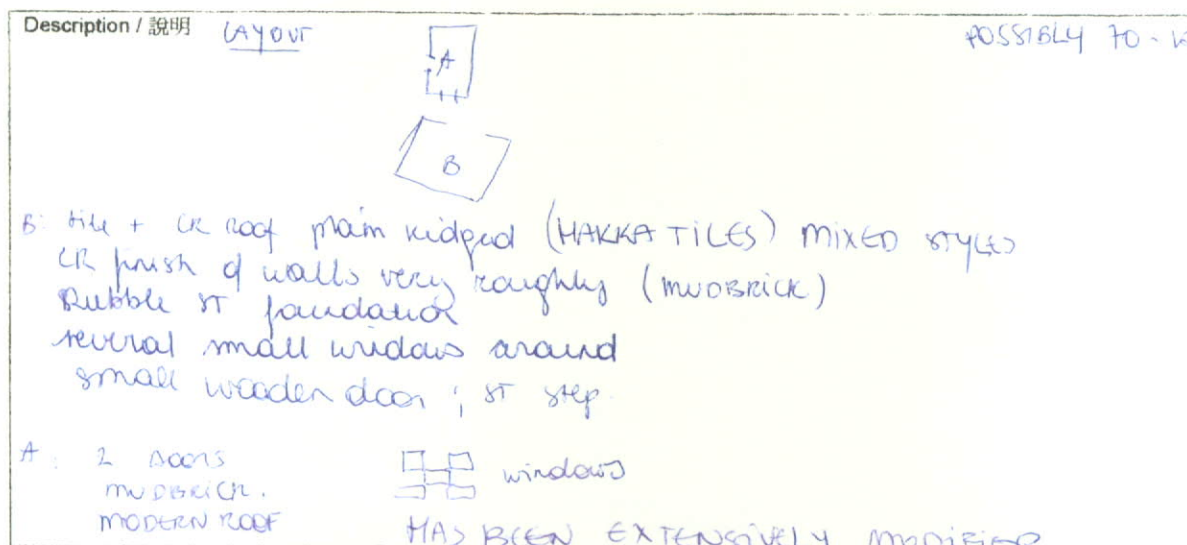 Description / 說明 LAYOUT
POSSIBLY 70 -
A
B
B: tile + CR roof plain ridged (HAKKA TILES) MIXED STYLES
CR finish of walls very roughly (MUDBRICK)
Rubble ST foundation
several small windows around
small wooden door ; ST step.
A: 2 DOORS
windows
MUDBRICK.
MODERN ROOF
HAS BEEN EXTENSIVELY MODIFIED